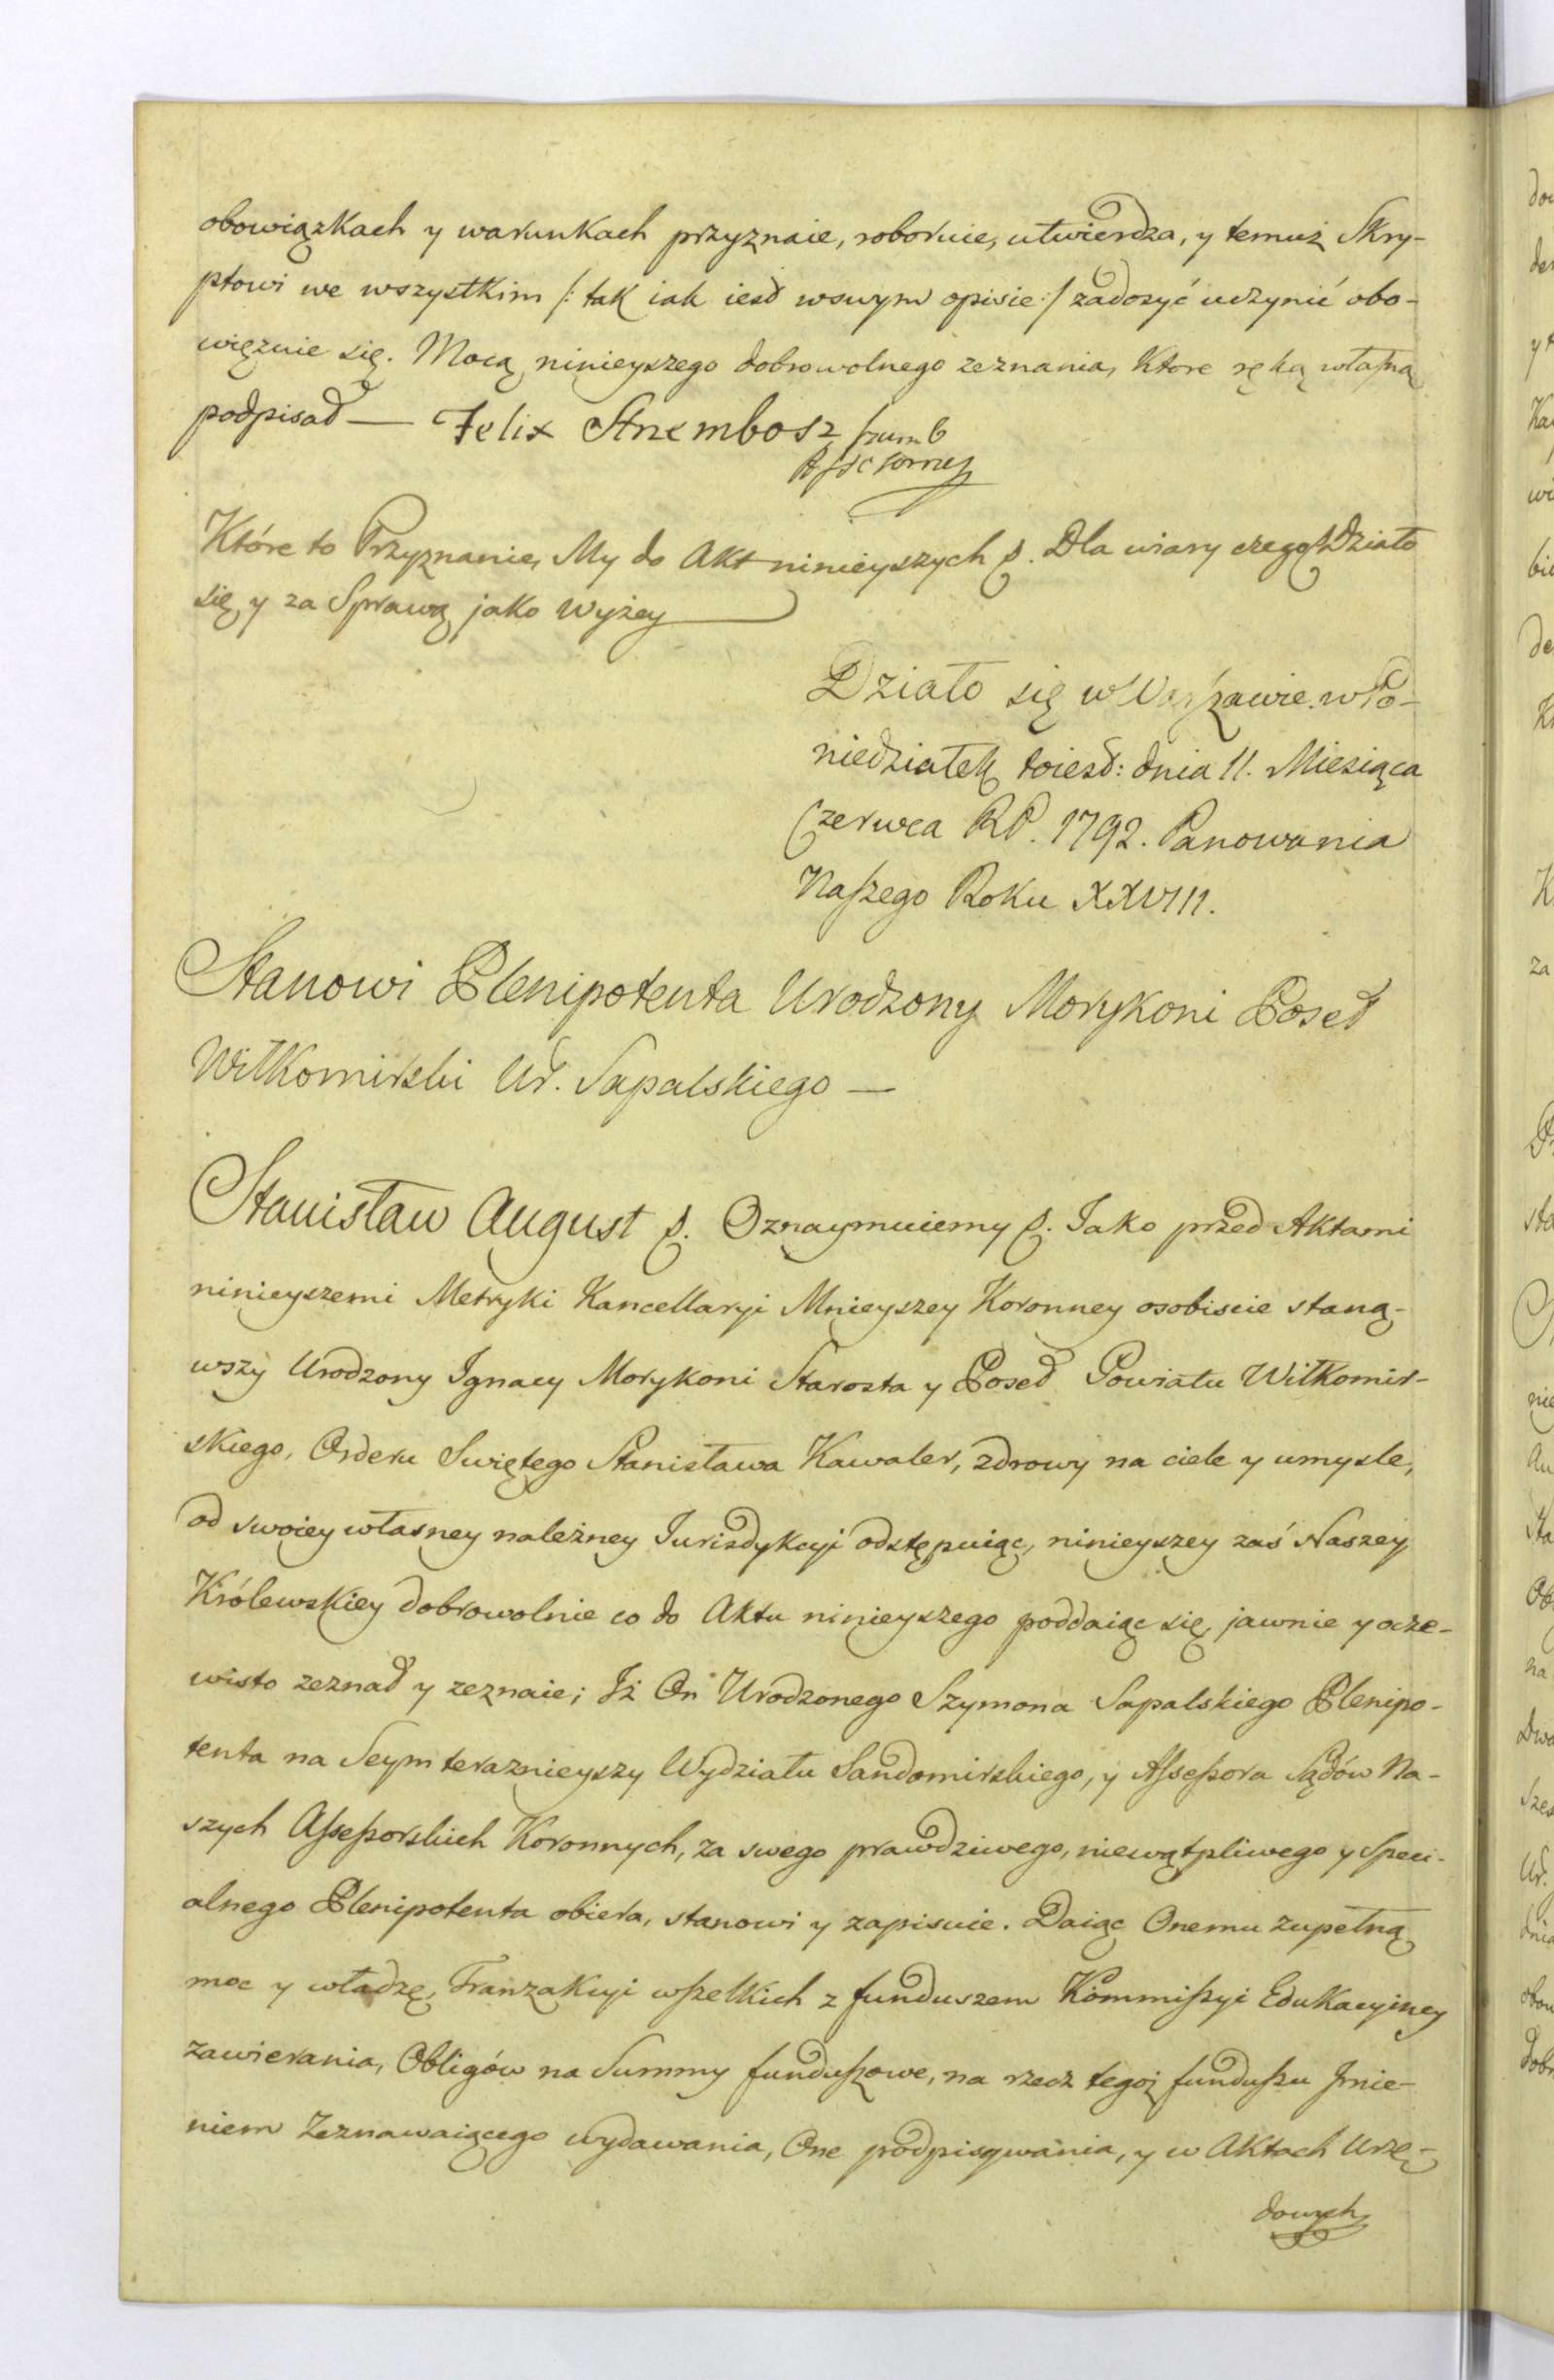 obowiązkach y warunkach przyznaie, roboruie, utwierdza, y temuż Skry-
ptowi we wszystkim /: tak iak iest wswym opisie :/ zadosyć uczynić obo-
więzuie się. Mocą ninieyszego dobrowolnego zeznania, Ktore ręką własną
podpisał — Felix Strzembosz
Które to Przyznanie, My do Akt ninieyszych p. Dla wiary czego p Działo
się y za Sprawą jako wyżey
Działo się w Warszawie. w Po-
niedziałek toiest: dnia 11. Miesiąca
Czerwca RP. 1792. Panowania
Naszego Roku XXVIII.
Stanowi Plenipotenta Urodzony Morykoni Poseł
Wiłkomirski Ur. Sapalskiego —
Stanisław August p. Oznaymuiemy p. Jako przed Aktami
ninieyszemi Metryki Kancellaryi Mnieyszey Koronney osobiscie staną-
wszy Urodzony Ignacy Morykoni Starosta y Poseł Powiatu Wiłkomir-
skiego, Orderu Swiętego Stanisława Kawaler, zdrowy na ciele y umysle,
od swoiey własney należney Jurisdykcyi odstępuiąc, ninieyszey zaś Naszey
Królewskiey dobrowolnie co do Aktu ninieyszego poddaiąc się, jawnie y ocze-
wisto zeznał y zeznaie; Iż On Urodzonego Szymona Sapalskiego Plenipo-
tenta na Seym teraznieyszy Wydziału Sandomirskiego, y Assessora Sądów Na-
szych Assessorskich Koronnych, za swego prawdziwego, niewątpliwego y Speci-
alnego Plenipotenta obiera, stanowi y zapisuie. Daiąc Onemu zupełną
moc y władzę, Tranzakcyi wszelkich z funduszem Kommissyi Edukacyiney
zawierania, Obligów na Summy funduszowe, na rzecz tegoż funduszu Jmie-
niem Zeznawaiącego wydawania, One podpisywania, y w Aktach Urzę-
dowych